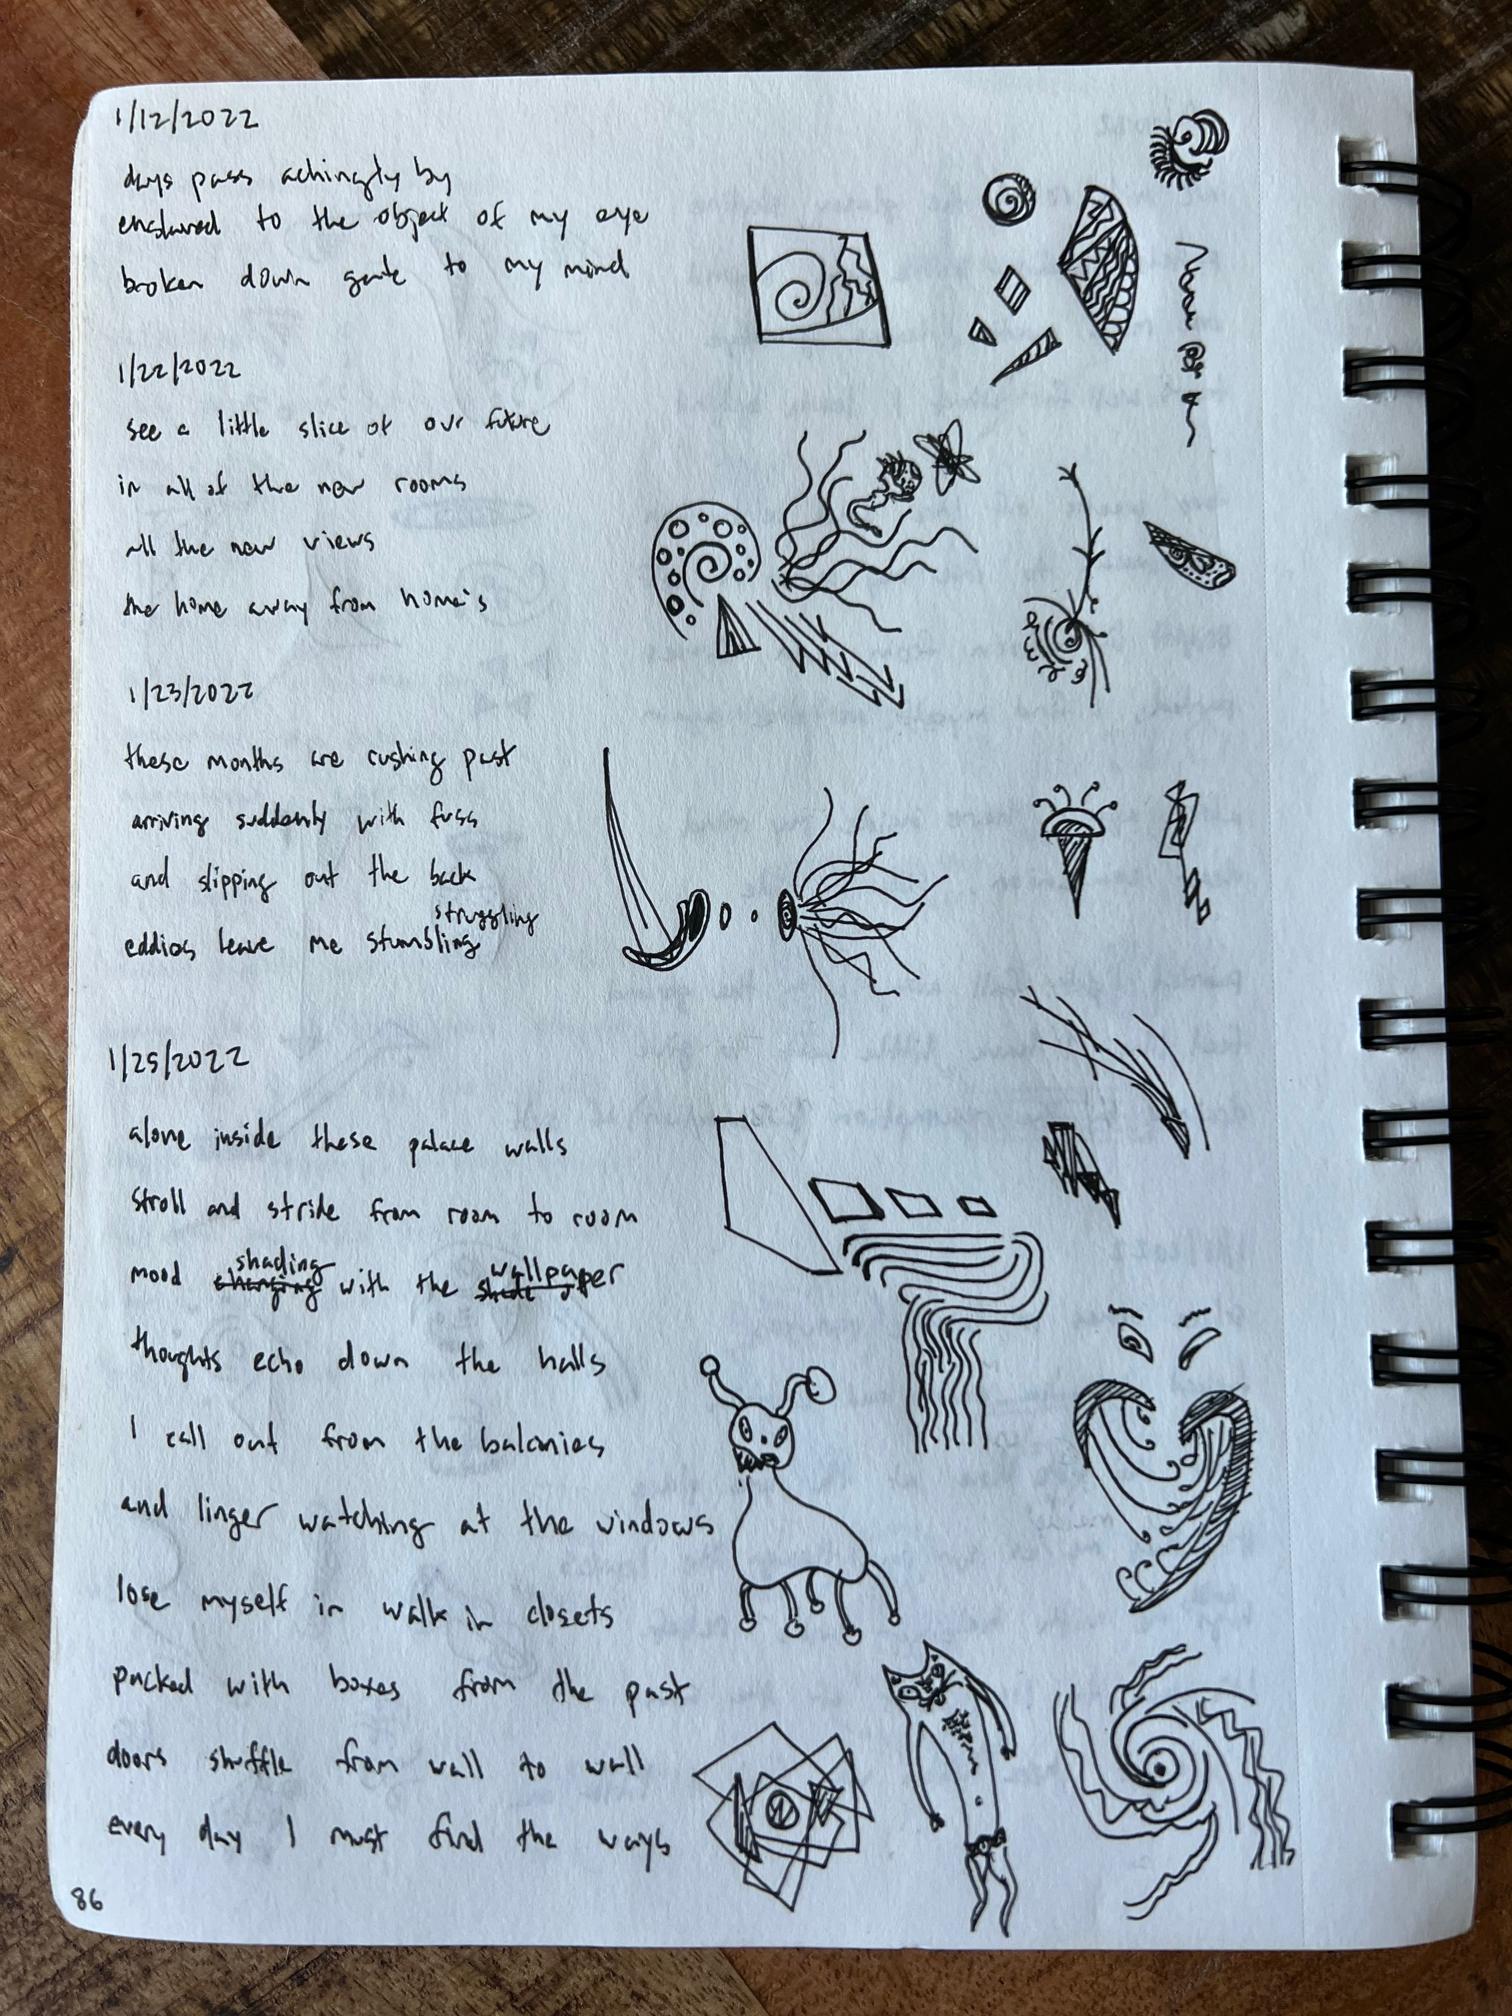 1/12/2022
days pass achingly by
enslaved to the object of my eye
broken down gate to my mind
1/22/2022
see a little slice of our future
in all of the new rooms
all the new views
the home away from home's
1/23/2022
these months are rushing past
arriving suddenly with fuss
and slipping out the back
struggling
eddies leave me stumbling
1/25/2022
alone inside these palace walls
stroll and stride from room to room
shading wallpaper
mood changing with the shade of
thoughts echo down the halls
I call out from the balconies
and linger watching at the windows
lose myself in walk in closets
packed with boxes from the past
doors shuffle from wall to wall
every day I must find the ways
86